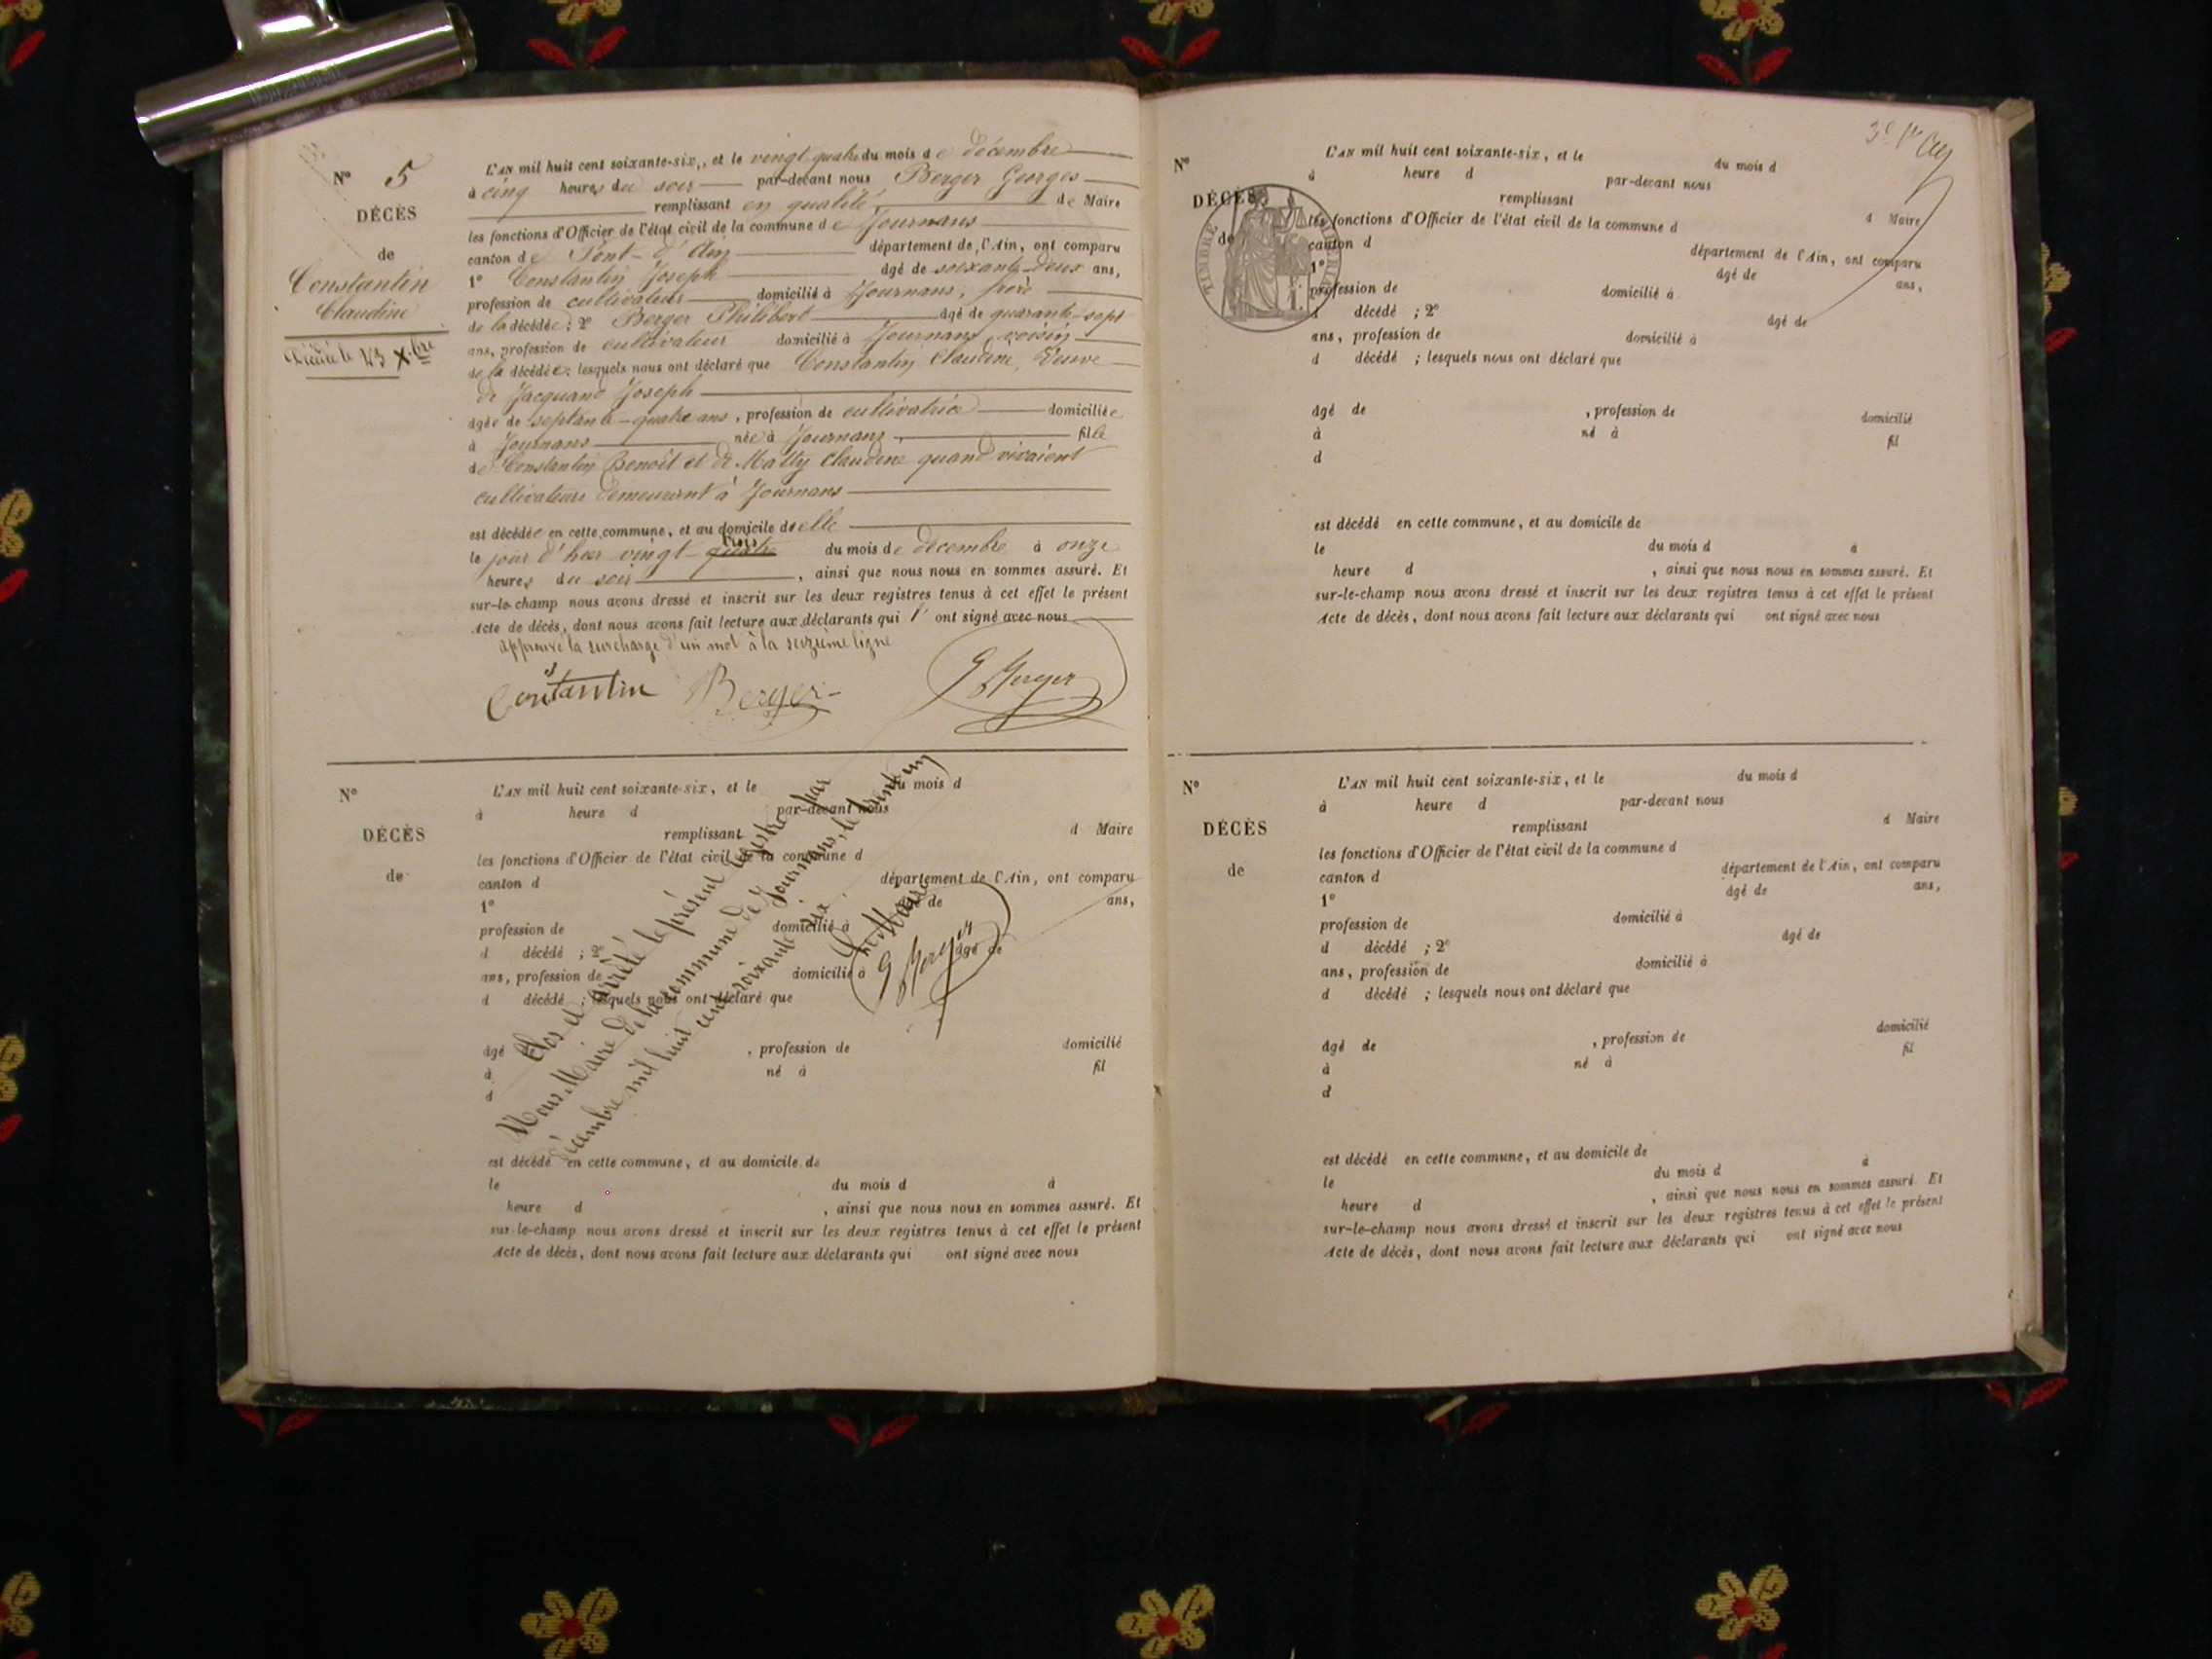 N° 5
DÉCÈS
de
Constantin
Claudine
Décédée le 23 Xbre
L'AN mil huit cent soixante-six, et le vingt quatre du mois de décembre
à cinq heures du soir par-devant nous Berger Georges
remplissant en qualité de Maire
les fonctions d'Officier de l'état civil de la commune de Journans
canton de Pont-d'Ain département de l'Ain, ont comparu
1° Constantin Joseph âgé de soixante-deux ans,
profession de cultivateur domicilié à Journans, frère
de la décédée ; 2° Berger Philibert âgé de quarante-sept
ans, profession de cultivateur domicilié à Journans, voisin
de la décédée ; lesquels nous ont déclaré que Constantin Claudine, Veuve
de Jacquand Joseph
âgée de septante-quatre ans, profession de cultivatrice domiciliée
à Journans née à Journans, fille
de Constantin Benoît et de Matty Claudine quand vivaient
cultivateurs demeurant à Journans
est décédée en cette commune, et au domicile d'elle
le jour d'hier vingt-trois du mois de décembre à onze
heures du soir, ainsi que nous nous en sommes assuré. Et
sur-le-champ nous avons dressé et inscrit sur les deux registres tenus à cet effet le présent
Acte de décès, dont nous avons fait lecture aux déclarants qui l' ont signé avec nous
approuvé la surcharge d'un mot à la seizième ligne
Constantin Berger G Berger
N°
DÉCÈS
de
L'AN mil huit cent soixante-six, et le du mois d
à heure d par-devant nous
remplissant d Maire
les fonctions d'Officier de l'état civil de la commune d
canton d département de l'Ain, ont comparu
1° âgé de ans,
profession de domicilié à
d décédé ; 2° âgé de
ans, profession de domicilié à
d décédé ; lesquels nous ont déclaré que
âgé , profession de domicilié
à né à fil
d
est décédé en cette commune, et au domicile de
le du mois d à
heure d , ainsi que nous nous en sommes assuré. Et
sur-le-champ nous avons dressé et inscrit sur les deux registres tenus à cet effet le présent
Acte de décès, dont nous avons fait lecture aux déclarants qui ont signé avec nous
Clos et arrêté le présent registre par
Nous Maire de la commune de Journans, le trente un
décembre mil huit cent soixante six.
Le Maire
G Berger
N°
DÉCÈS
de
TIMBRE
L'AN mil huit cent soixante-six, et le du mois d
à heure d par-devant nous
remplissant d Maire
les fonctions d'Officier de l'état civil de la commune d
canton d département de l'Ain, ont comparu
1° âgé de ans,
profession de domicilié à
d décédé ; 2° âgé de
ans, profession de domicilié à
d décédé ; lesquels nous ont déclaré que
âgé de , profession de domicilié
à né à fil
d
est décédé en cette commune, et au domicile de
le du mois d à
heure d , ainsi que nous nous en sommes assuré. Et
sur-le-champ nous avons dressé et inscrit sur les deux registres tenus à cet effet le présent
Acte de décès, dont nous avons fait lecture aux déclarants qui ont signé avec nous
N°
DÉCÈS
de
L'AN mil huit cent soixante-six, et le du mois d
à heure d par-devant nous
remplissant d Maire
les fonctions d'Officier de l'état civil de la commune d
canton d département de l'Ain, ont comparu
1° âgé de ans,
profession de domicilié à
d décédé ; 2° âgé de
ans, profession de domicilié à
d décédé ; lesquels nous ont déclaré que
âgé de , profession de domicilié
à né à fil
d
est décédé en cette commune, et au domicile de
le du mois d à
heure d , ainsi que nous nous en sommes assuré. Et
sur-le-champ nous avons dressé et inscrit sur les deux registres tenus à cet effet le présent
Acte de décès, dont nous avons fait lecture aux déclarants qui ont signé avec nous